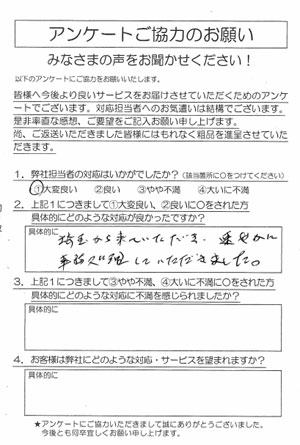 アンケートご協力のお願い
みなさまの声をお聞かせください！
以下のアンケートにご協力をお願いいたします。
皆様へ今後より良いサービスをお届けさせていただくためのアンケ
ートでございます。対応担当者へのお気遣いは結構でございます。
是非率直な感想、ご要望をご記入お願い申し上げます。
尚、ご返送いただきました皆様にはもれなく粗品を進呈させていた
だきます。
1．弊社担当者の対応はいかがでしたか？（該当箇所に○をつけてください）
①大変良い　②良い　③やや不満　④大いに不満
2．上記1につきまして①大変良い、②良いに○をされた方
具体的にどのような対応が良かったですか？
具体的に
埼玉から来ていただき、速やかに
事務処理していただきました。
3．上記1につきまして③やや不満、④大いに不満に○をされた方
具体的にどのような対応に不満を感じられましたか？
具体的に
4．お客様は弊社にどのような対応・サービスを望まれますか？
具体的に
★アンケートにご協力いただきまして誠にありがとうございました。
今後とも何卒宜しくお願い申し上げます。